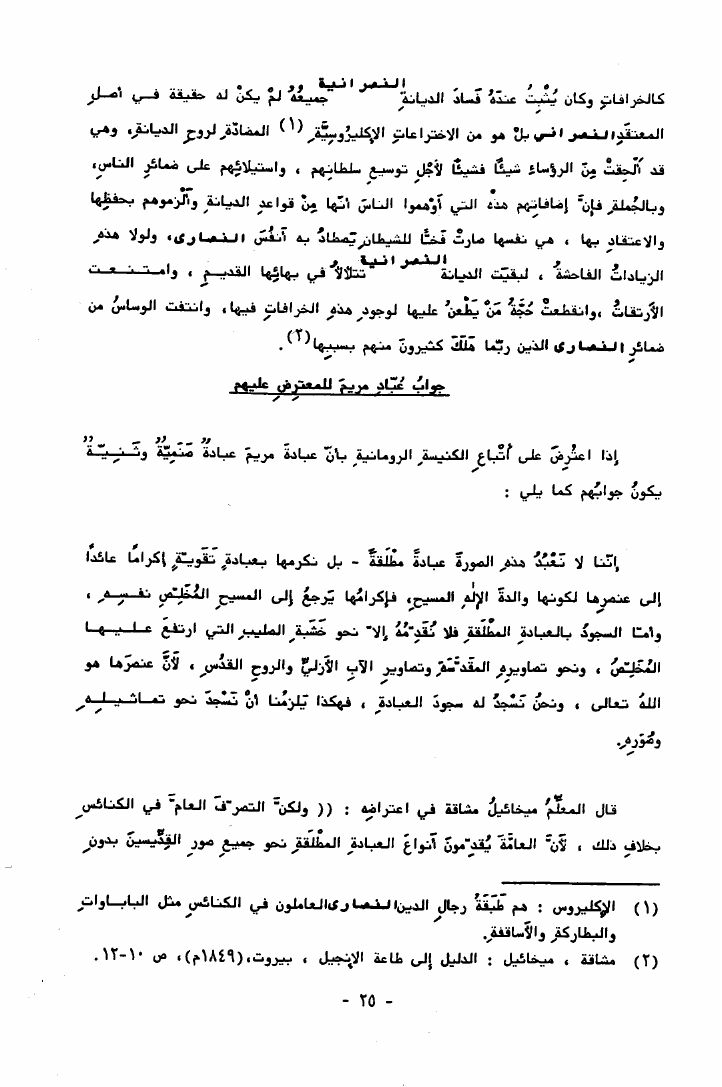 كالخرافاتِ وكان يُثْبِتُ عندَهُ فَسادَ الديانةِ النصرانية جميعُهُ لمْ يكنْ له حقيقة فـي أصـلِ
المعتقَدِ النصراني بلْ هو من الاختراعاتِ الإكليرُوسِيَّةِ (١) المضادَّةِ لروحِ الديانةِ، وهي
قد أُلْحِقتْ مِنَ الرؤساءِ شيئًا فشيئًا لأجْلِ توسيعِ سلطانِهم ، واستيلائِهم على ضمائرِ الناسِ،
وبالجُملةِ فإنَّ إضافاتِهم هذْه التي أوْهموا الناسَ أنّها مِنْ قواعدِ الديانةِ وألْزموهم بحفظِها
والاعتقادِ بها ، هي نفسها صارتْ فَخًّا للشيطانِ يَصطادُ به أنفُسَ النصارى، ولولا هذه
الزياداتُ الفاحشةُ ، لبقيَت الديانةُ النصرانية تتلألأُ في بهائِها القديـمِ ، وامـتـنـعـت
الأرتقاتُ ،وانقطعتْ حُجَّةُ مَنْ يَطْعنُ عليها لوجودِ هذهِ الخرافاتِ فيها، وانتفت الوساسُ من
ضمائرِ النصارى الذين ربّما هَلَكَ كثيرونَ منهم بسببِها(٢).
جوابُ عُبّادِ مريمَ للمعترِضِ عليهم
إذا اعتُرِضَ على أتْباعِ الكنيسةِ الرومانيةِ بأنّ عبادةَ مريمَ عبادةٌ صَنَمِيّةٌ وثَـنِـيّـةٌ
يكونُ جوابُهم كما يلي :
إنّنا لا نَعْبُدُ هذهِ الصورةَ عبادةً مطْلَقةً - بل نكرمها بعبادةٍ تَقَوِيّةٍ إكرامًا عائدًا
إلى عنصرِها لكونها والدةَ الإلٰهِ المسيحِ، فإكرامُها يَرجعُ إلى المسيحِ المُخَلِّصِ نفـسِـهِ ،
وأمّا السجودُ بالعبادةِ المطْلَقةِ فلا نُقَدِّمُهُ إلاّ نحو خَشَبةِ الصليبِ التي ارتفعَ عـلـيـهـا
المُخَلِّصُ ، ونحو تصاويرِهِ المقدَّسَةِ وتصاويرِ الآبِ الأزليِّ والروحِ القدُسِ ، لأنَّ عنصرَها هو
اللهُ تعالى ، ونحنُ نَسْجدُ له سجودَ العبادةِ ، فهكذا يَلزمُنا أنْ نَسْجدَ نحو تمـاثـيـلِـهِ
وصُوَرِهِ.
قال المعلِّمُ ميخائيلُ مشاقة في اعتراضِه : (( ولكنَّ التصرّفَ العامَّ في الكنائسِ
بخلافِ ذلك ، لأنَّ العامَّةَ يُقدِّمونَ أنواعَ العبادةِ المطْلَقةِ نحو جميعِ صورِ القِدِّيسينَ بدونِ
(١) الإكليروس : هم طَبَقَةُ رجالِ الدين النصارى العاملون في الكنائسِ مثل البابـاواتِ
والبطاركةِ والأساقفةِ.
(٢) مشاقة ، ميخائيل : الدليل إلى طاعة الإنجيل ، بيروت،(١٨٤٩م)، ص ١٠-١٢.
- ٢٥ -